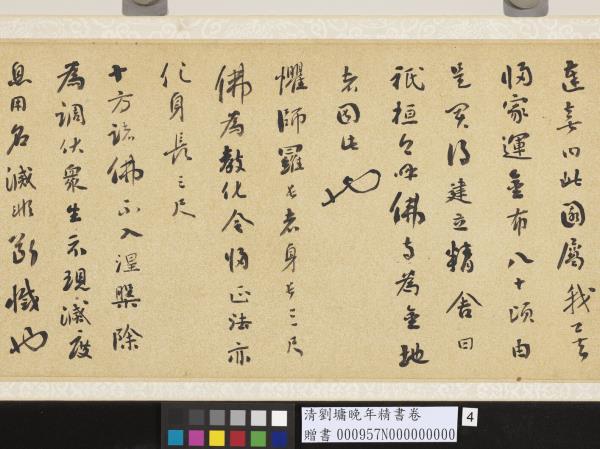 達喜以此園屬我已去
歸家運金布八十頃由
是買得建立精舍曰
祇桓又呼佛寺為金地
者因此也
懼師羅長者身長三尺
佛為教化令歸正法亦
化身長三尺
十方諸佛不入涅槃除
為調伏眾生示現滅度
息用名滅非斷滅也
清劉墉晚年精書卷
贈書 000957N000000000
4